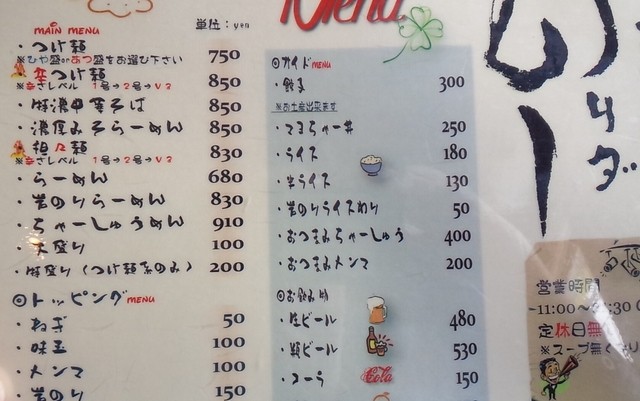 Menu
単位：yen
MAIN MENU
・つけ麺 750
※ひや盛orあつ盛をお選び下さい
辛つけ麺 850
※辛さレベル 1号→2号→V3
・特濃中華そば 850
・濃厚みそらーめん 850
担々麺 830
※辛さレベル 1号→2号→V3
・らーめん 680
・岩のりらーめん 830
・ちゃーしゅうめん 910
大盛り 100
・特盛り（つけ麺系のみ） 200
◎トッピングMENU
・ねぎ 50
・味玉 100
・メンマ 100
・岩のり 150
◎サイドMENU
・餃子 300
※お土産出来ます
・マヨちゃー丼 250
・ライス 180
・半ライス 130
・岩のりライス 50
・おつまみちゃーしゅう 400
・おつまみメンマ 200
◎お飲み物
・生ビール 480
・瓶ビール 530
・コーラ Cola 150
りダ
営業時間
11:00～
定休日無
※スープ無くなり